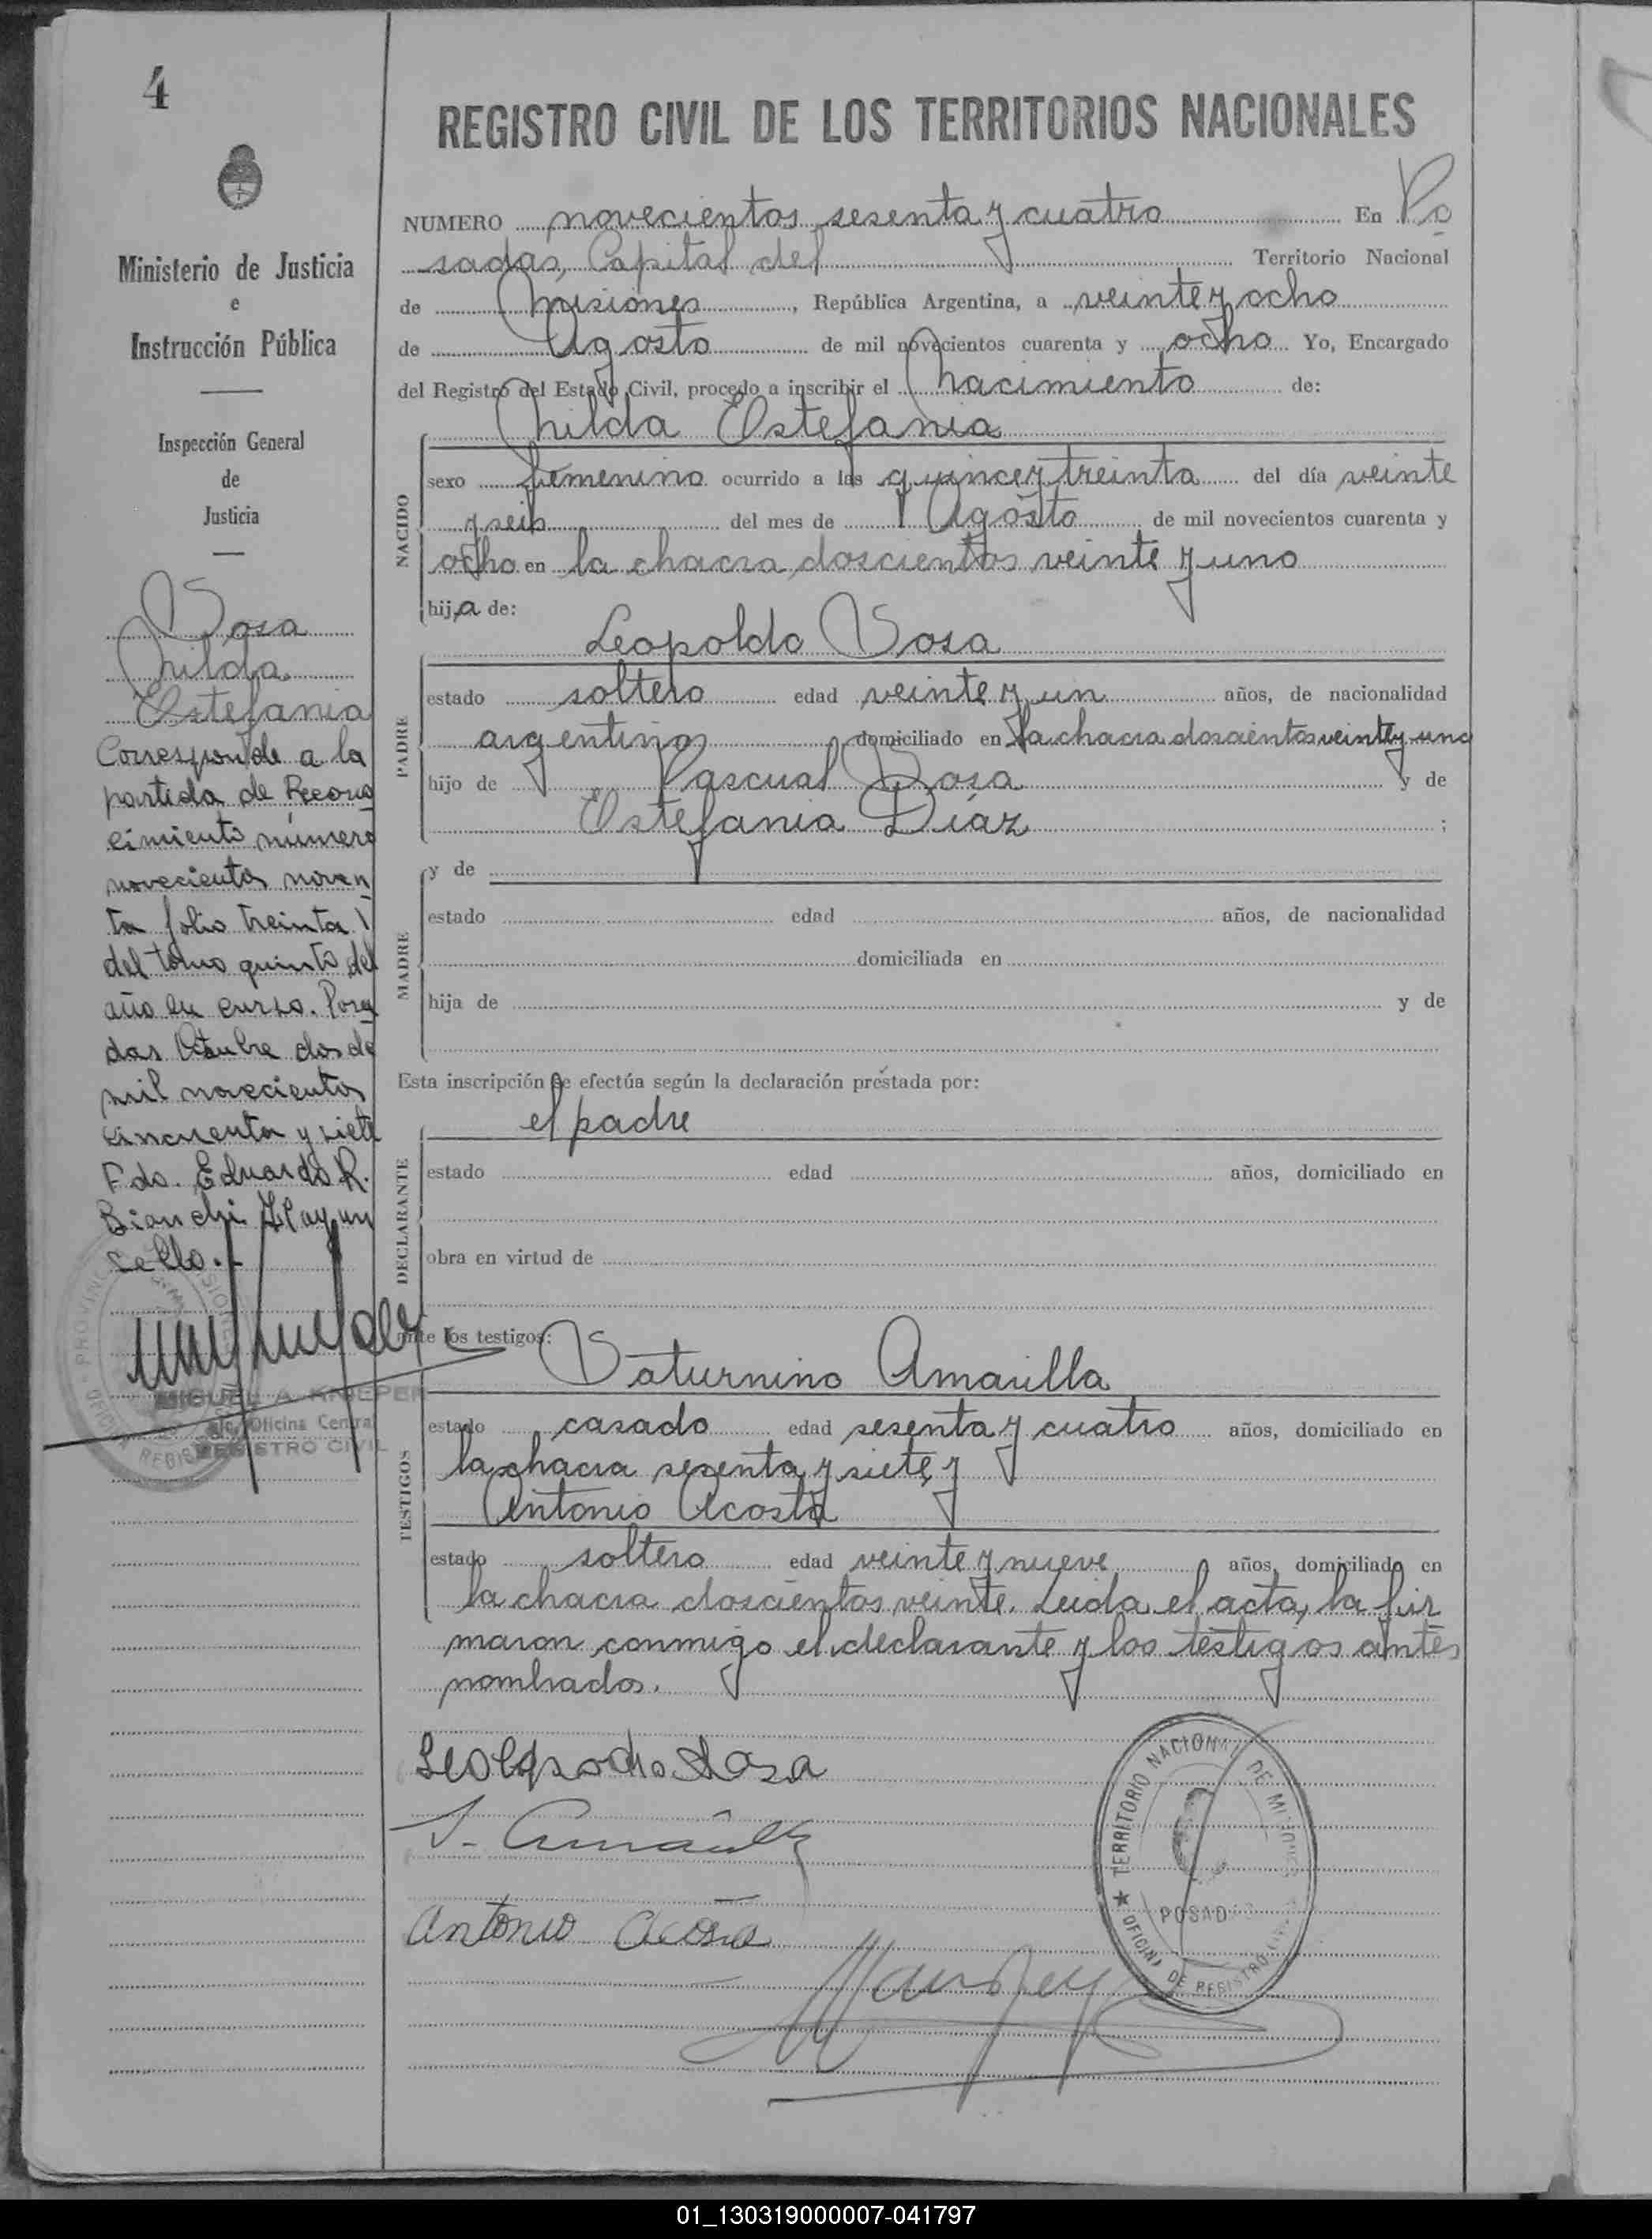 4
Ministerio de Justicia
e
Instrucción Pública
Inspección General
de
Justicia
Sosa
Nilda
Estefania
Corresponde a la
partida de Recono
cimiento número
novecientos noven
ta folio treinta
del tomo quinto del
año en curso. Posa
das Octubre dos de
mil novecientos
cincuenta y siete
Fdo. Eduardo R.
Bianchi Hay un
sello.-
MIGUEL A. KNIEPER
Oficina Central
REGISTRO CIVIL
REGISTRO CIVIL DE LOS TERRITORIOS NACIONALES
NUMERO novecientos sesenta y cuatro En Po
sadas, Capital del Territorio Nacional
de Misiones, República Argentina, a veinte y ocho
de Agosto de mil novecientos cuarenta y ocho Yo, Encargado
del Registro del Estado Civil, procedo a inscribir el nacimiento de:
Nilda Estefania
NACIDO
sexo femenino ocurrido a las quince y treinta del día veinte
y seis del mes de Agosto de mil novecientos cuarenta y
ocho en la chacra doscientos veinte y uno
hija de:
Leopoldo Sosa
PADRE
estado soltero edad veinte y un años, de nacionalidad
argentino domiciliado en la chacra doscientos veinte y uno
hijo de Pascual Sosa y de
Estefania Díaz;
MADRE
y de
estado edad años, de nacionalidad
domiciliada en
hija de y de
Esta inscripción se efectúa según la declaración prestada por:
el padre
DECLARANTE
estado edad años, domiciliado en
obra en virtud de
ante los testigos:
Saturnino Amarilla
TESTIGOS
estado casado edad sesenta y cuatro años, domiciliado en
la chacra sesenta y siete y
Antonio Acosta
estado soltero edad veinte y nueve años, domiciliado en
la chacra doscientos veinte. Leida el acta, la fir
maron conmigo el declarante y los testigos antes
nombrados.
Leolpodo Sosa
S. Amarilla
Antonio Acosta
TERRITORIO NACIONAL DE MISIONES
POSADAS
OFICINA DE REGISTRO CIVIL
01_130319000007-041797